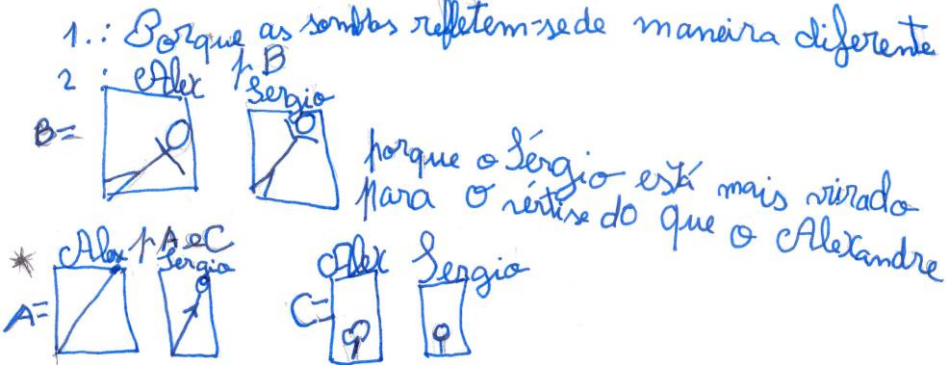 1.: Porque as sombras refletem-se de maneira diferente
2 : Alex p B Sergio
B=
porque o Sérgio está mais virado
para o vértise do que o Alexandre
* Alex p A e C Sergio Alex Sergio
A= C=